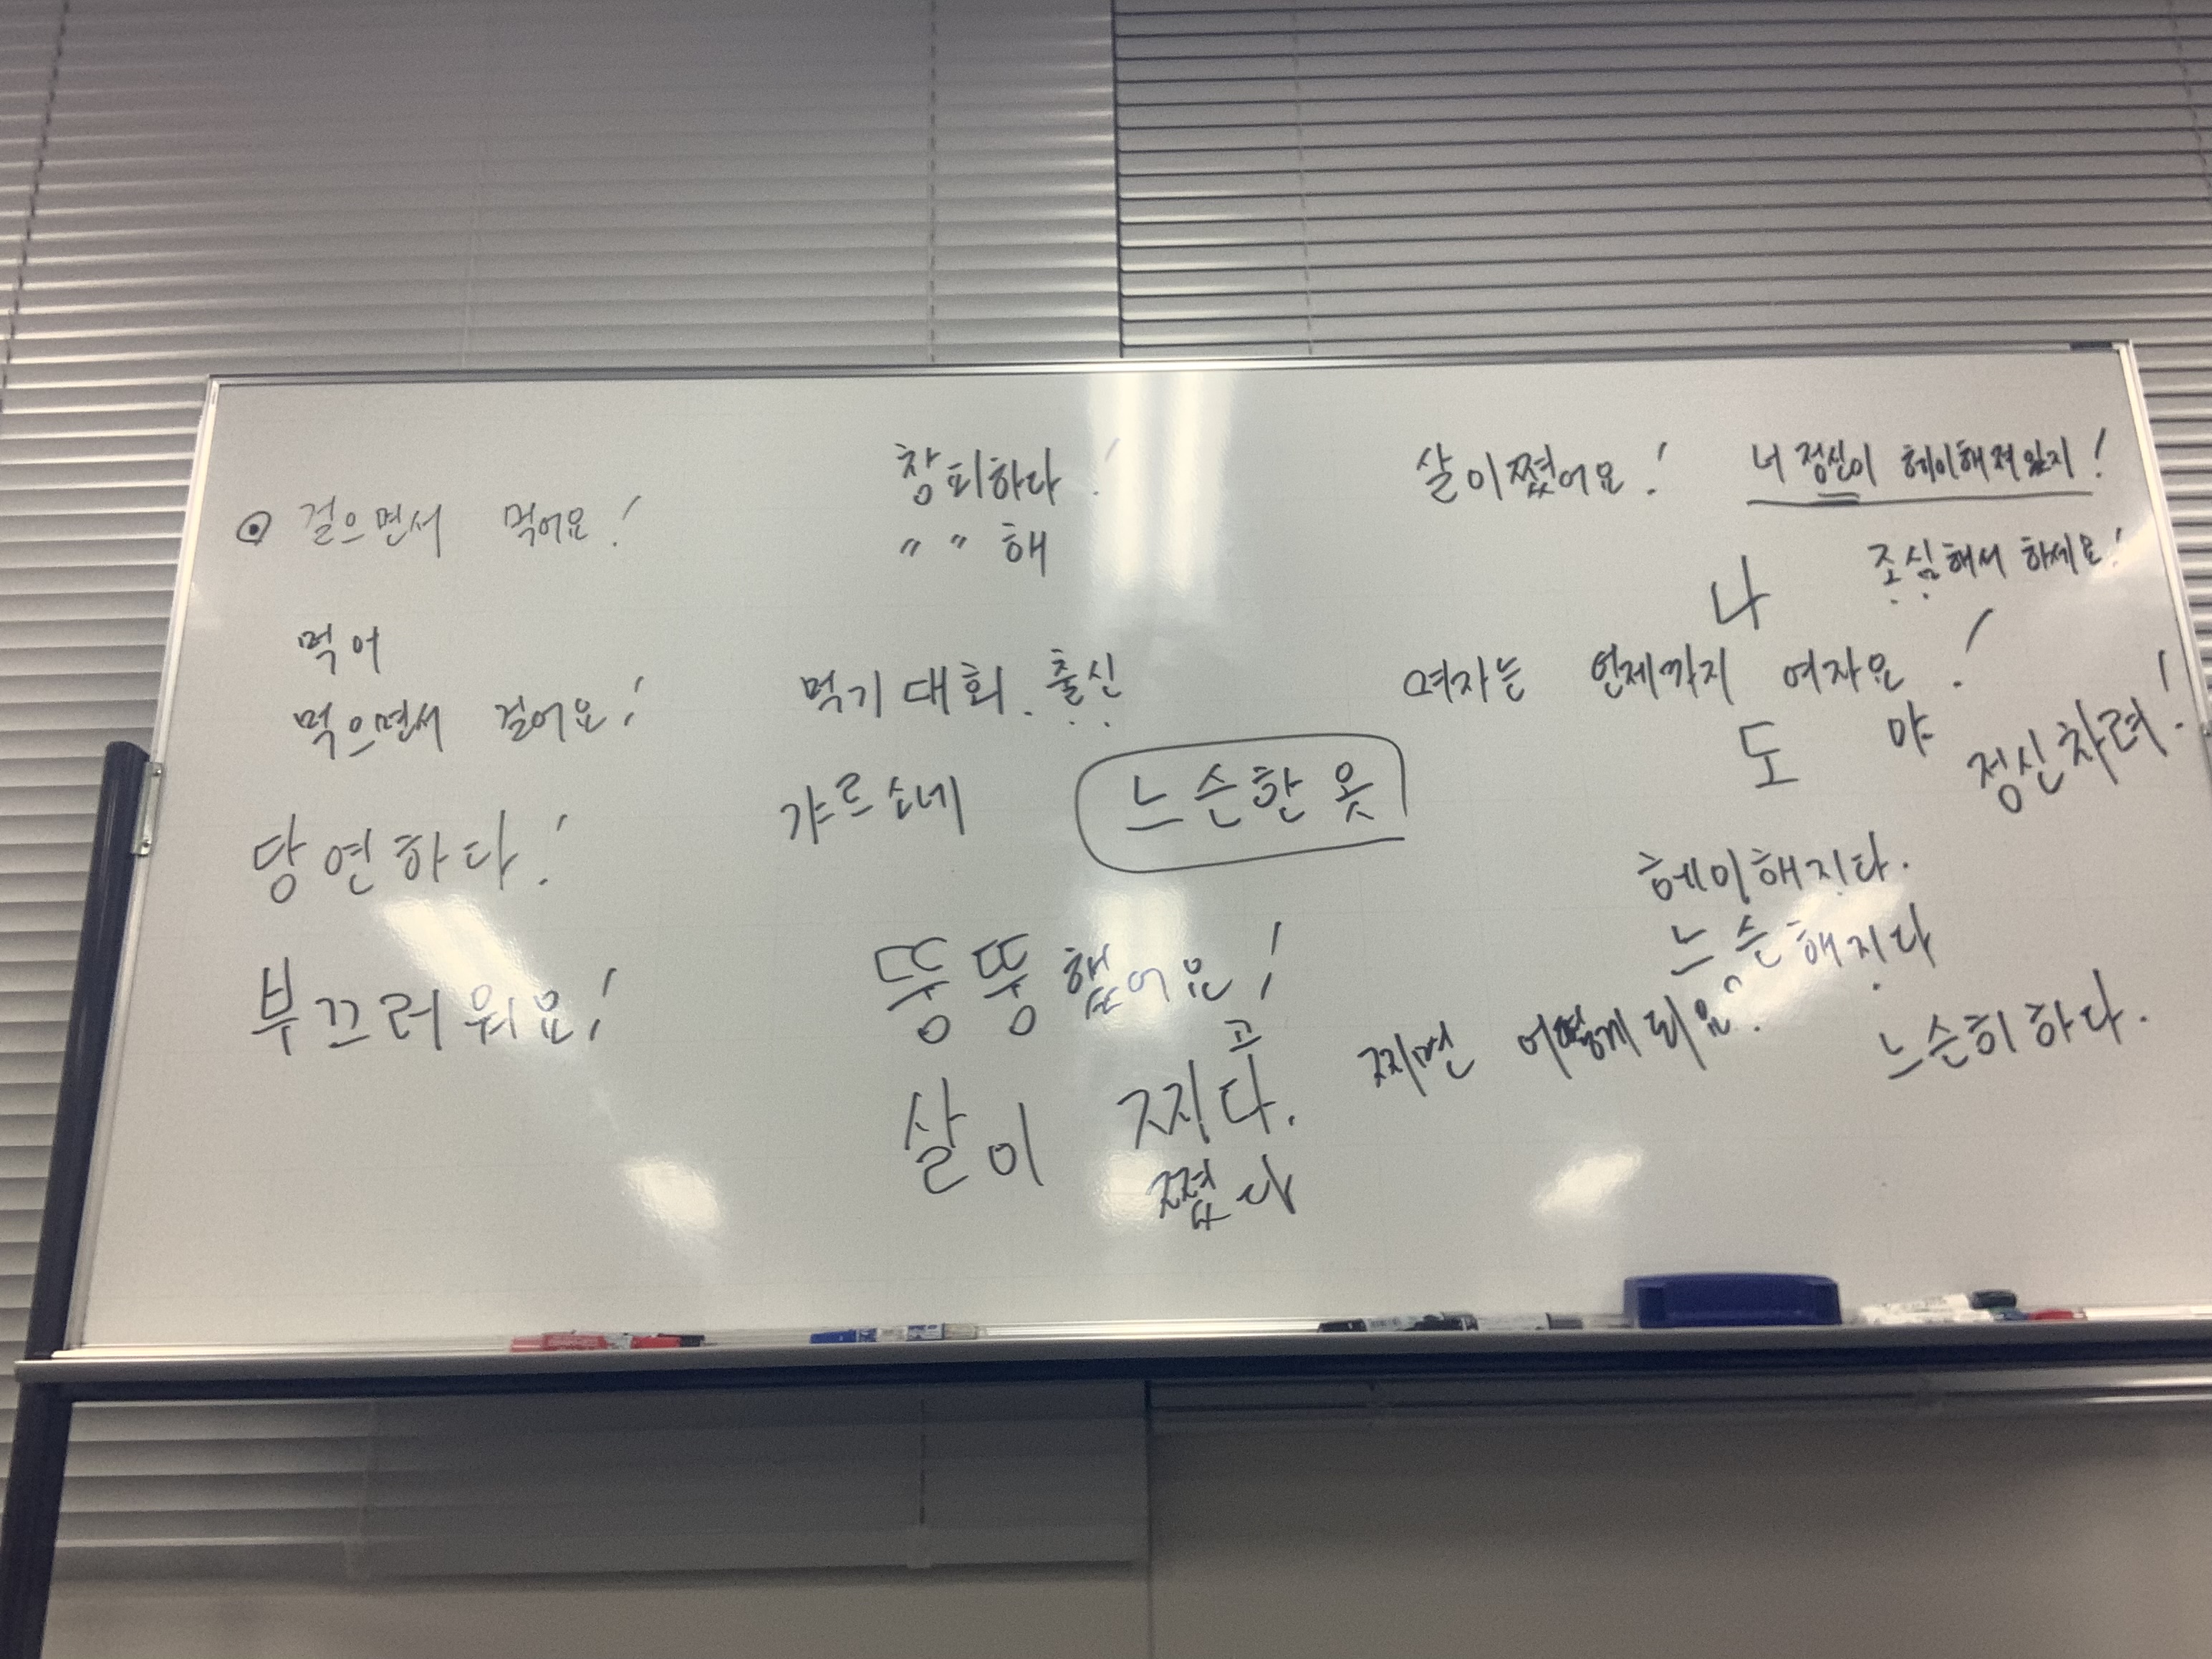 걸으면서 먹어요!
먹어
먹으면서 걸어요!
당연하다!
부끄러워요!
창피하다!
〃 〃 해
먹기 대회. 출신
갸르소네
느슨한 옷
뚱뚱했어요!
고
살이 찌다.
쪘다
찌면 어떻게 되요?
살이 쪘어요!
너 정신이 헤이해져있지!
조심해서 하세요!
나
여자는 언제까지 여자요!
도 야
정신차려!
헤이해지다.
느슨해지다
느슨히하다.